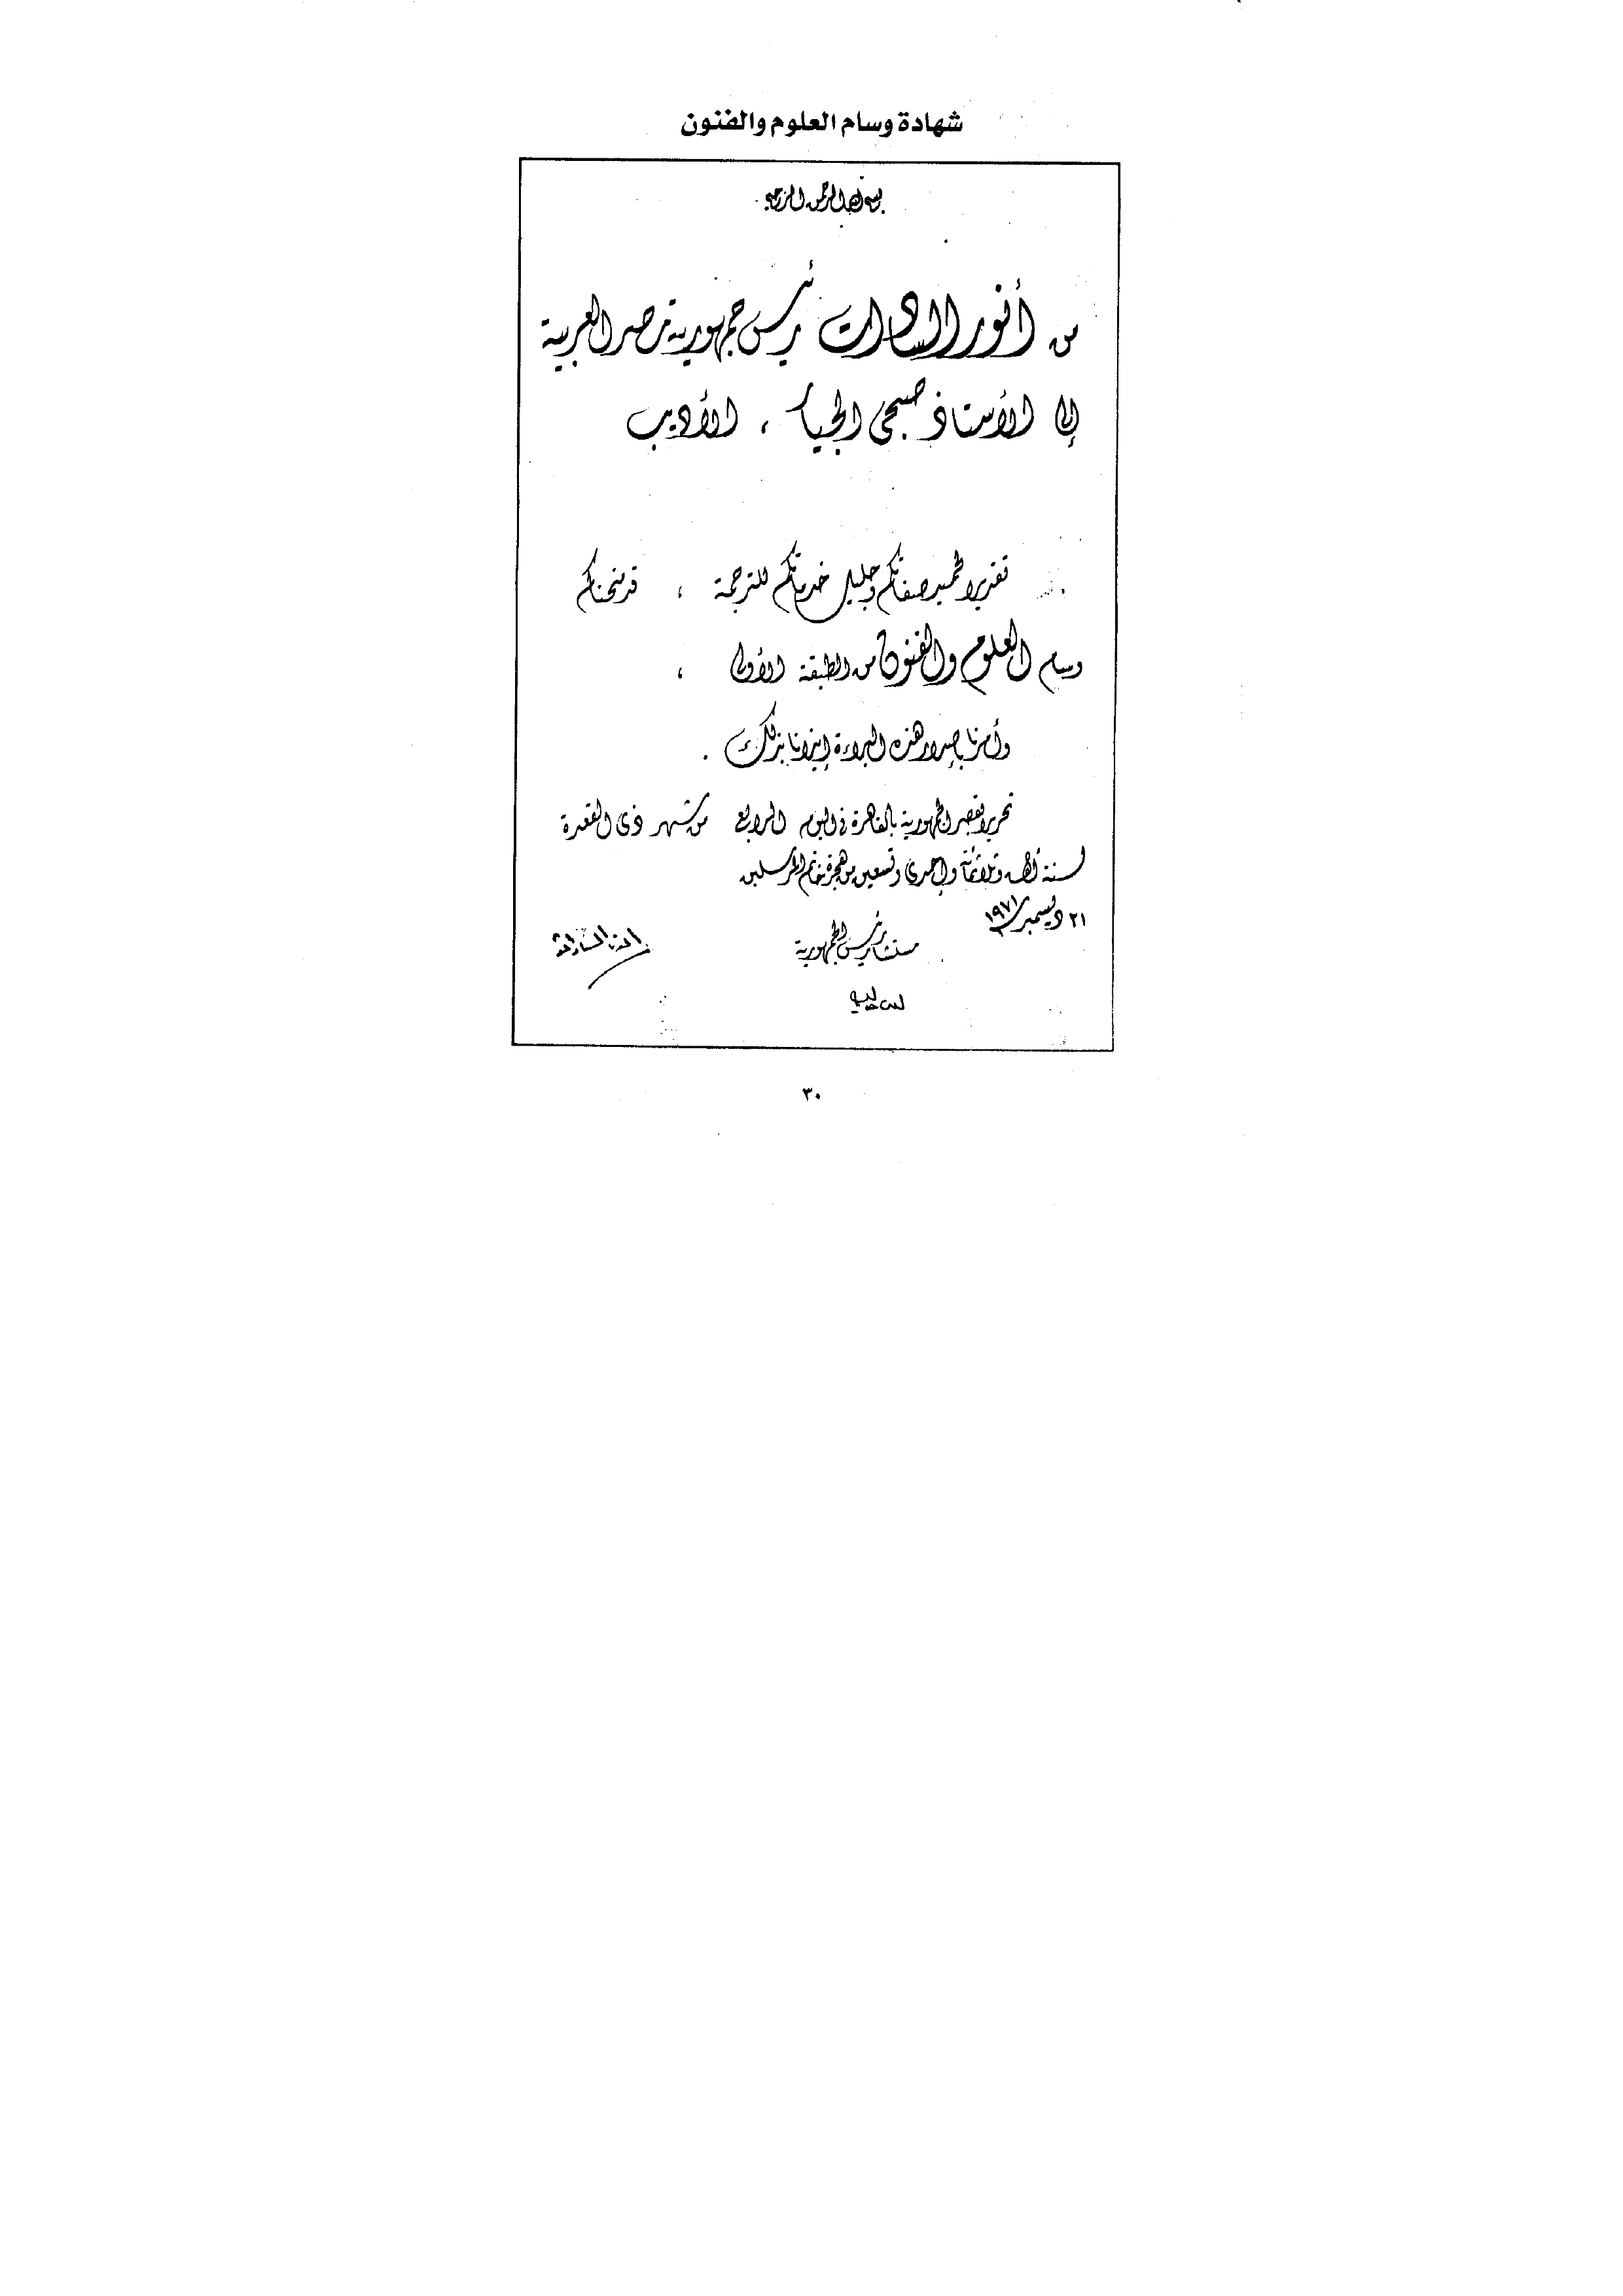 شهادة وسام العلوم والفنون
بسم الله الرحمن الرحيم
من أنور السادات رئيس جمهورية مصر العربية
إلى الأستاذ صبحى الجيار ، الأديب
تقديرا لحميد صفاتكم وجليل خدماتكم للترجمة ، قد منحناكم
وسام العلوم والفنون من الطبقة الأولى ،
وأمرنا بإصدار هذه البراءة إيذانا بذلك .
تحريرا بقصر الجمهورية بالقاهرة فى اليوم الرابع من شهر ذى القعدة
لسنة ألف وثلاثمائة وإحدى وتسعين من هجرة خاتم المرسلين
٢١ ديسمبر ١٩٧١
مستشار رئيس الجمهورية
٣٠